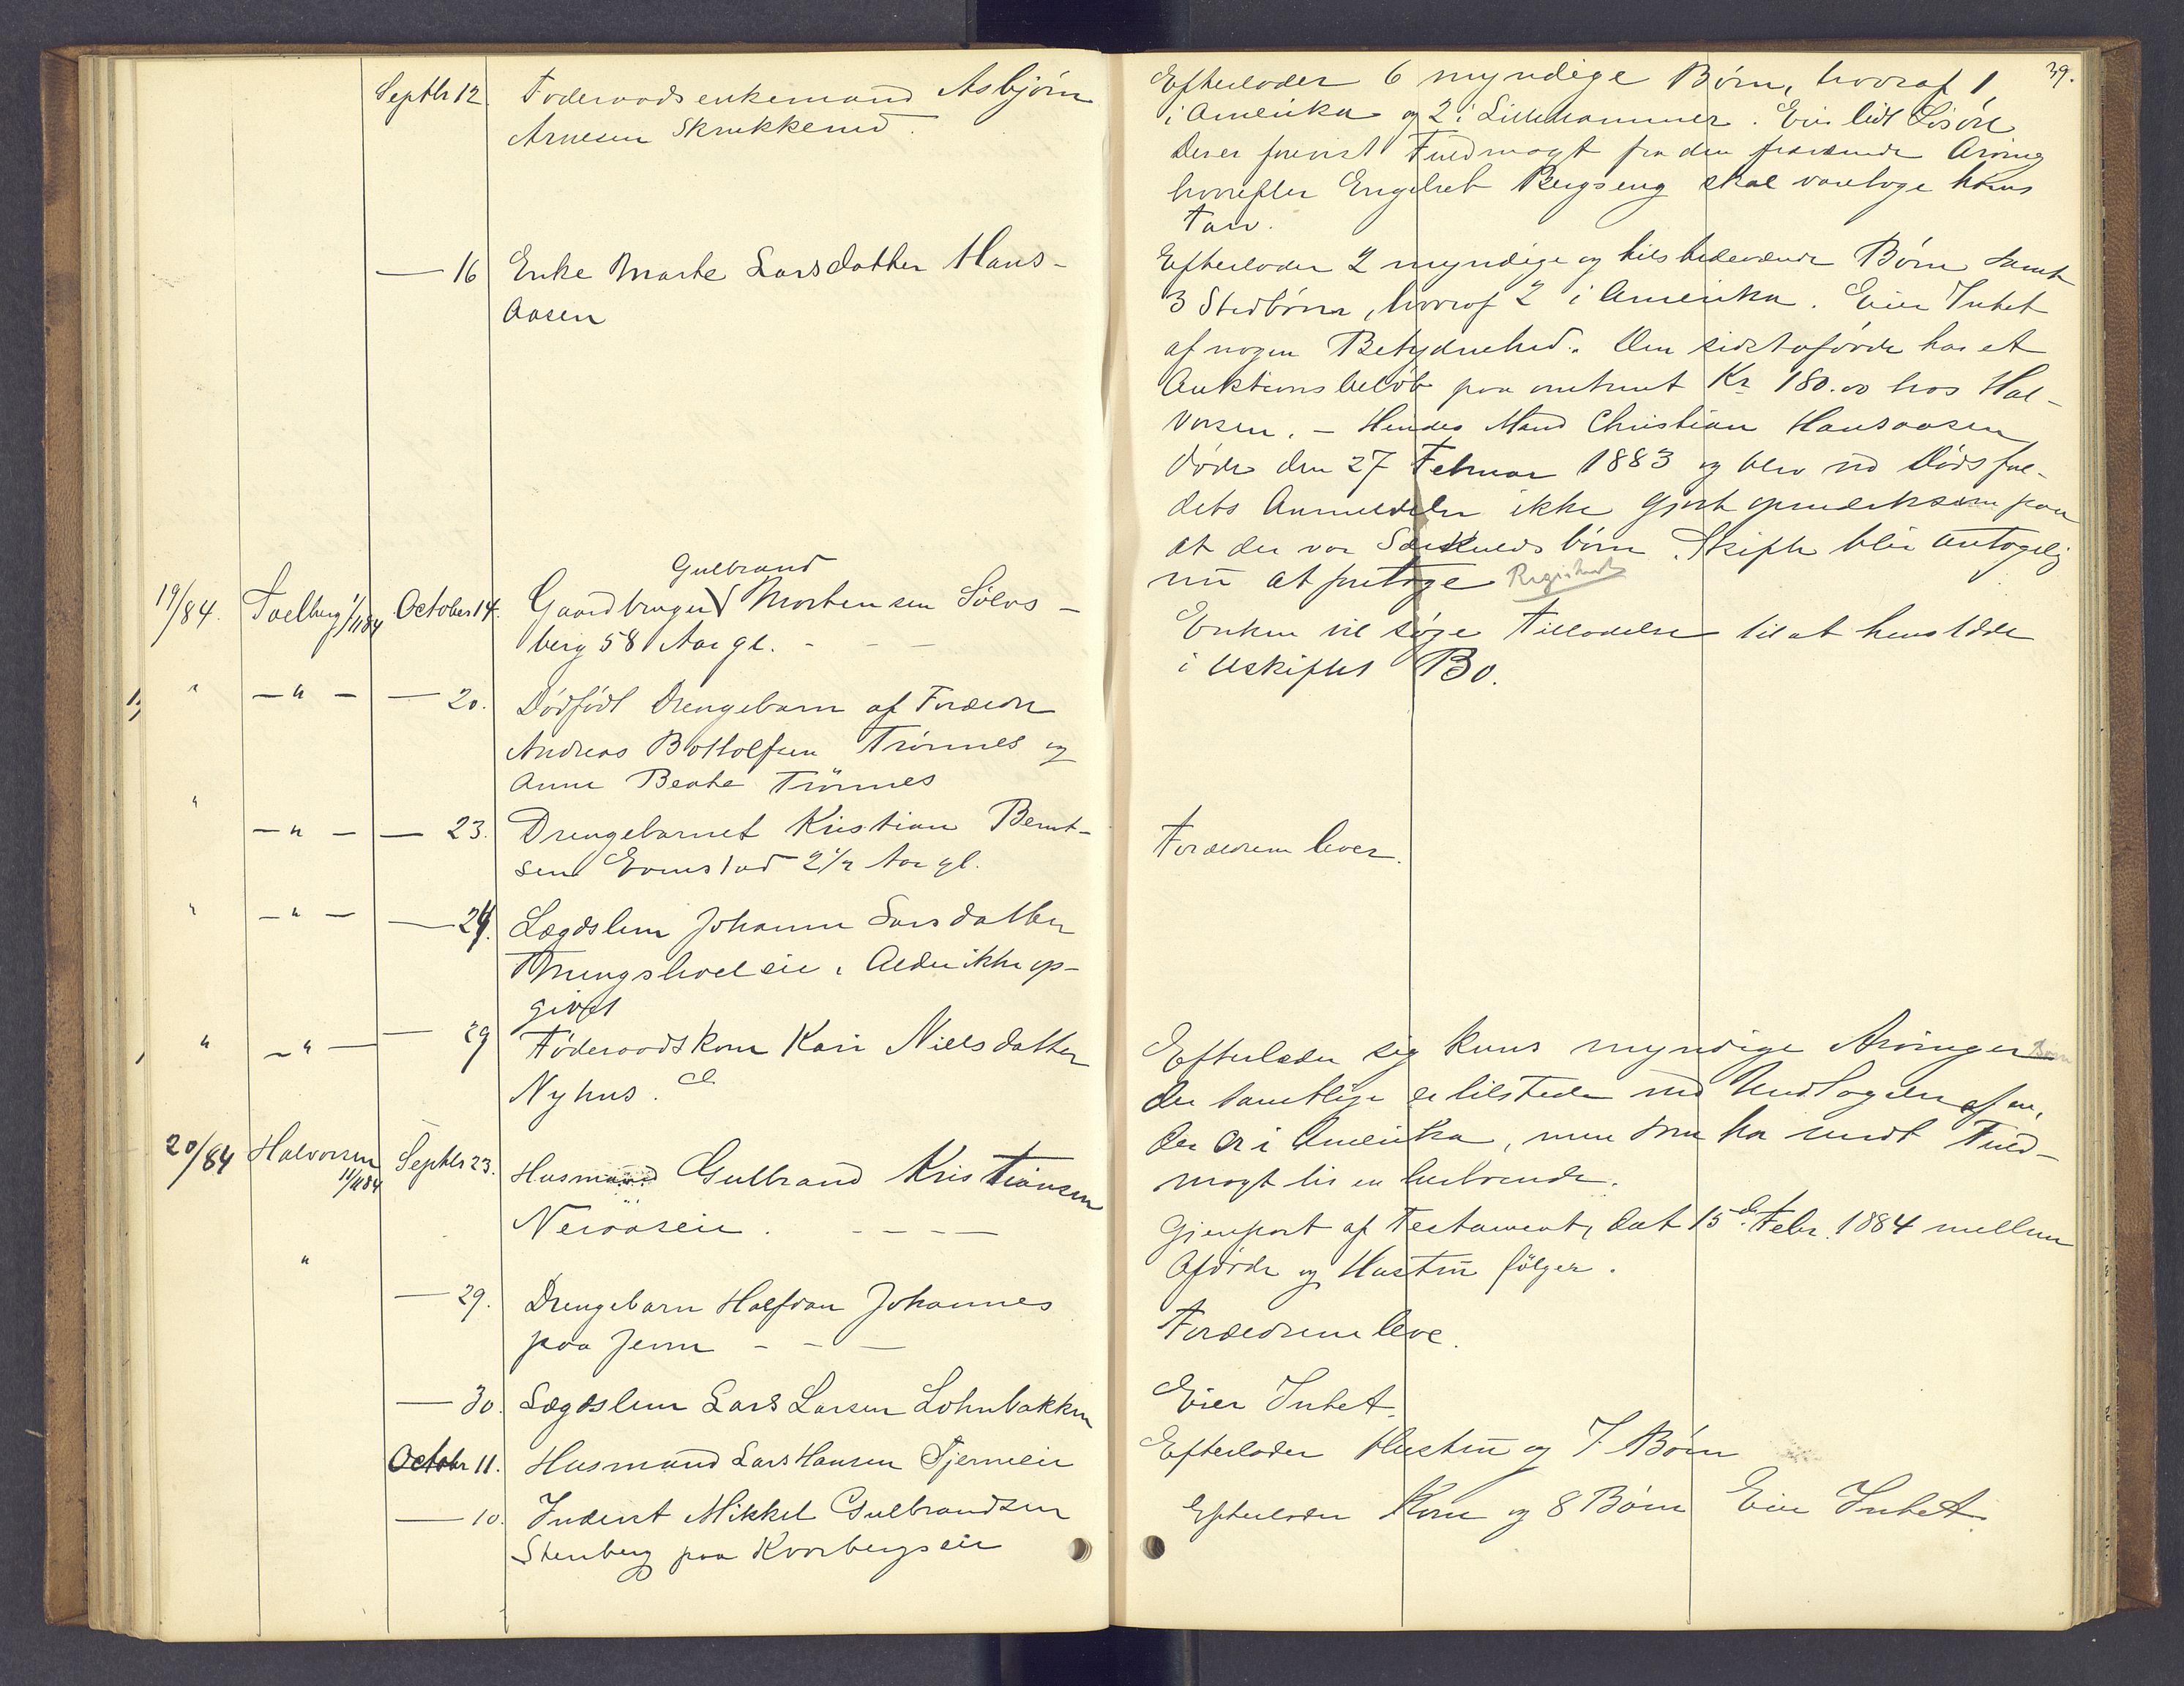 Septbr 12. Føderaadsenkemand Asbjørn
Arnesen Skrukkerud.
— 16 Enke Marte Larsdatter Hans-
aasen
Gulbrand
19/84. Toelberg 1/11 84 October 14. Gaardbruger Mortensen Sølvs-
berg 58 Aar gl. - - -
" — " — — 20. Dødfødt Drengebarn af Forældre
Andreas Bottolfsen Trønnes og
Anne Beate Trønnes
" — " — — 23. Drengebarnet Kristian Bernt-
sen Evenstad 2 1/2 Aar gl.
" — " — — 24. Lægdslem Johanne Larsdatter
eie, Alder ikke op-
givet
" — " — — 29 Føderaadskone Kari Nielsdatter
Nyhus.
20/84 Halvorsen 11/11 84 Septbr 23. Husmand Gulbrand Kristiansen
Neraaseie. - - - -
"
— 29. Drengebarn Halfdan Johannes
paa Jevne - - —
— 30. Lægdslem Lars Larsen Lohnbakken
Octobr 11. Husmand Lars Hansen Tjerneie
— 10. Inderst Mikkel Gulbrandsen
Stenberg paa Kvarbergseie
39.
Efterlader 6 myndige Børn, hvoraf 1
i Amerika og 2 i Lillehammer. Eier lidt Løsøre
Der er forevist Fuldmagt fra den fraværende Arving
hvorefter Engebret Bergseng skal varetage hans
Tarv.
Efterlader 2 myndige og tilstedeværende Børn samt
3 Stedbørn, hvoraf 2 i Amerika. Eier Intet
af nogen Betydenhed. Den sidstafdøde har et
Auktionsbeløb paa omtrent Kr 180.00 hos Hal-
vorsen. — Hendes Mand Christian Hansaasen
døde den 27 Februar 1883 og blev ved Dødsfal-
dets Anmeldelse ikke gjort opmerksom paa
at der var Særkuldsbørn. Skifte blir antagelig
nu at foretage Registreret
Enken vil søge Tilladelse til at hensidde
i Uskiftet Bo.
Forældrene lever.
Efterlader sig kuns myndige Arvinger Børn
der samtlige er tilstede med Undtagelse af en,
der er i Amerika, men som har sendt Fuld-
magt til en herboende.
Gjenpart af Testament, dat 15de Febr. 1884 mellem
Afdøde og Hustru følger.
Forældrene leve.
Eier Intet.
Efterlader Hustru og 7 Børn
Efterlader Kone og 8 Børn Eier Intet.